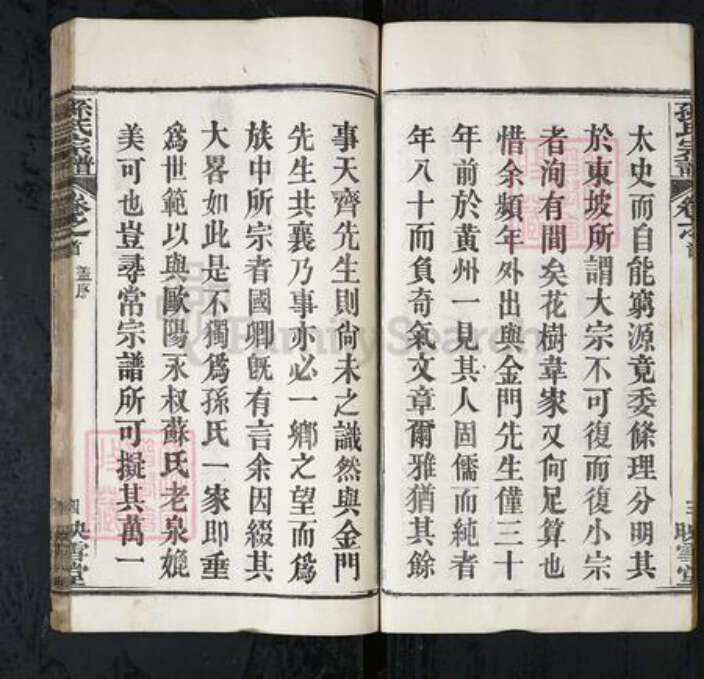 太史而自能窮源竟委條理分明其
於東坡所謂大宗不可復而復小宗
者洵有間矣花樹韋家又何足算也
惜余頻年外出與金門先生僅三十
年前於黃州一見其人固儒而純者
年八十而負奇氣文章爾雅猶其餘
事天齊先生則尙未之識然與金門
先生共襄乃事亦必一鄉之望而爲
族中所宗者國卿旣有言余因綴其
大畧如此是不獨爲孫氏一家卽垂
爲世範以與歐陽永叔蘇氏老泉媲
美可也豈尋常宗譜所可擬其萬一
孫氏宗譜
卷之首
蓋序
四
映雪堂
孫氏宗譜
卷之首
三
映雪堂
FamilySearch